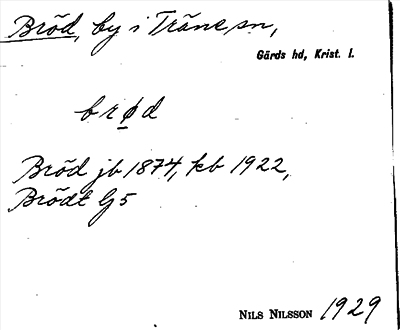 Bröd, by i Träne sn,
Gärds hd, Krist. l.
brø̱d
Bröd jb 1874, kb 1922,
Brödt G5
NILS NILSSON 1929